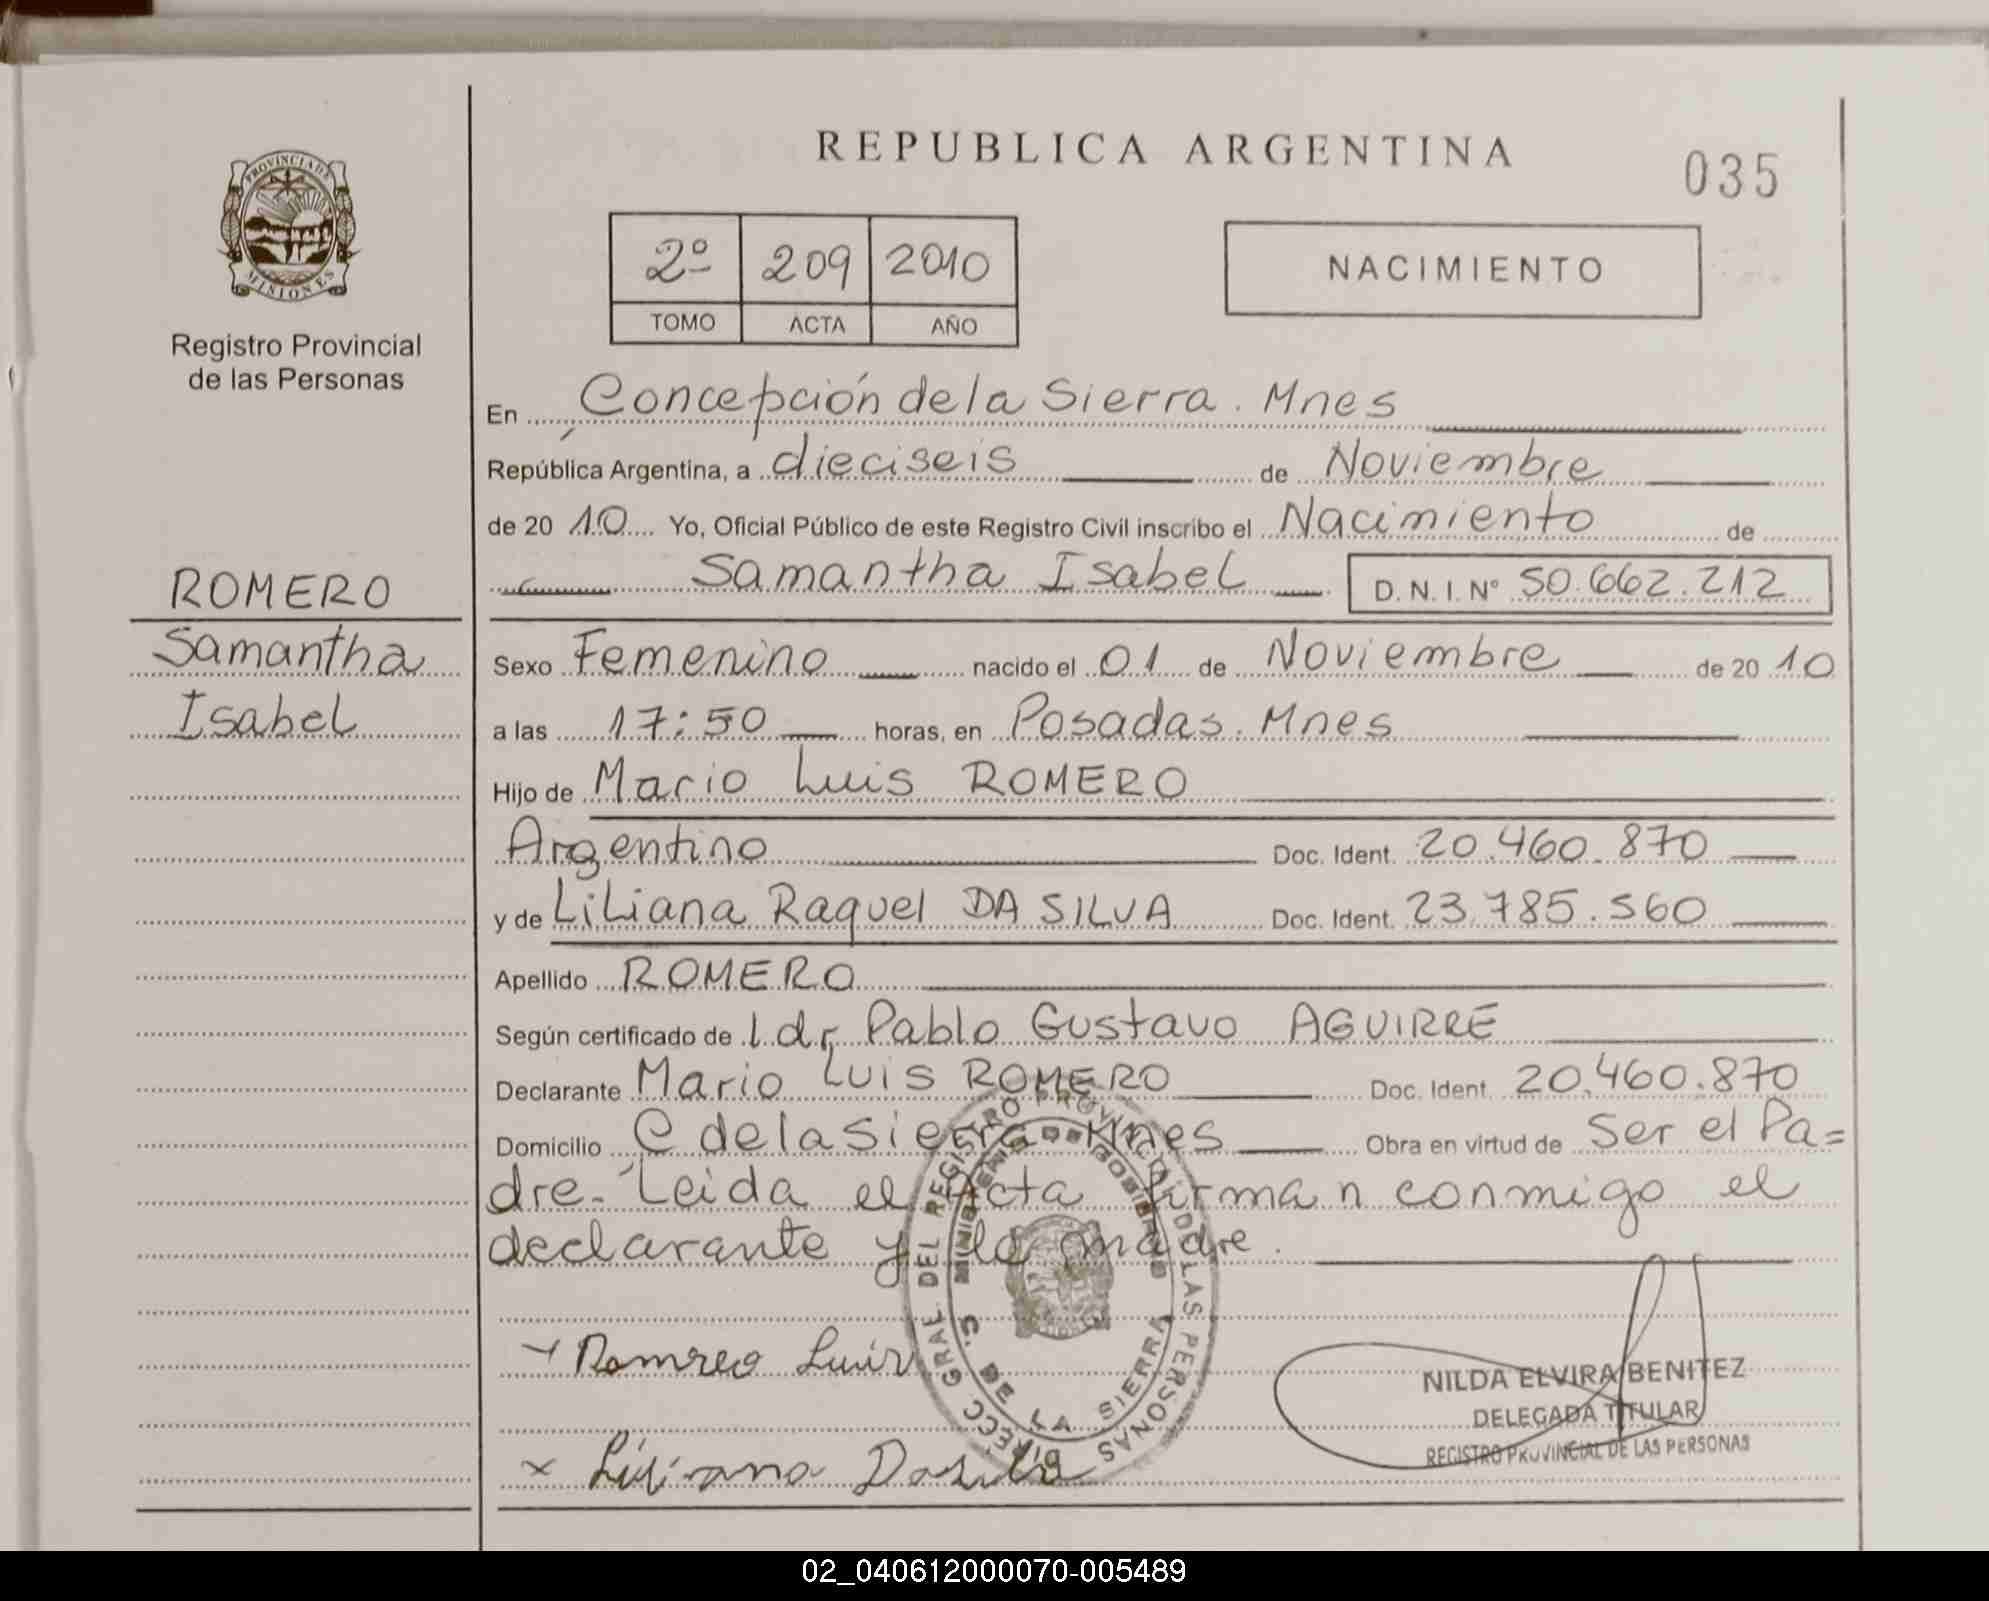 REPUBLICA ARGENTINA
035
PROVINCIA DE
MISIONES
Registro Provincial
de las Personas
2º 209 2010
TOMO ACTA AÑO
NACIMIENTO
En Concepción de la Sierra. Mnes
República Argentina, a dieciseis de Noviembre
de 20 10 Yo, Oficial Público de este Registro Civil inscribo el Nacimiento de
Samantha Isabel D.N.I. Nº 50.662.212
ROMERO
Samantha
Isabel
Sexo Femenino nacido el 01 de Noviembre de 20 10
a las 17:50 horas, en Posadas. Mnes
Hijo de Mario Luis ROMERO
Argentino Doc. Ident. 20.460.870
y de Liliana Raquel DA SILVA Doc. Ident. 23.785.560
Apellido ROMERO
Según certificado de l dr Pablo Gustavo AGUIRRE
Declarante Mario Luis ROMERO Doc. Ident. 20.460.870
Domicilio C de la Sierra Mnes Obra en virtud de Ser el Pa=
dre. Leida el Acta firman conmigo el
declarante y la madre.
DIRECC. GRAL. DEL REGISTRO PROVINCIAL DE LAS PERSONAS
MINISTERIO DE GOBIERNO
C. DE LA SIERRA
Romreo Luis
Liliana Dasilva
NILDA ELVIRA BENITEZ
DELEGADA TITULAR
REGISTRO PROVINCIAL DE LAS PERSONAS
02_040612000070-005489